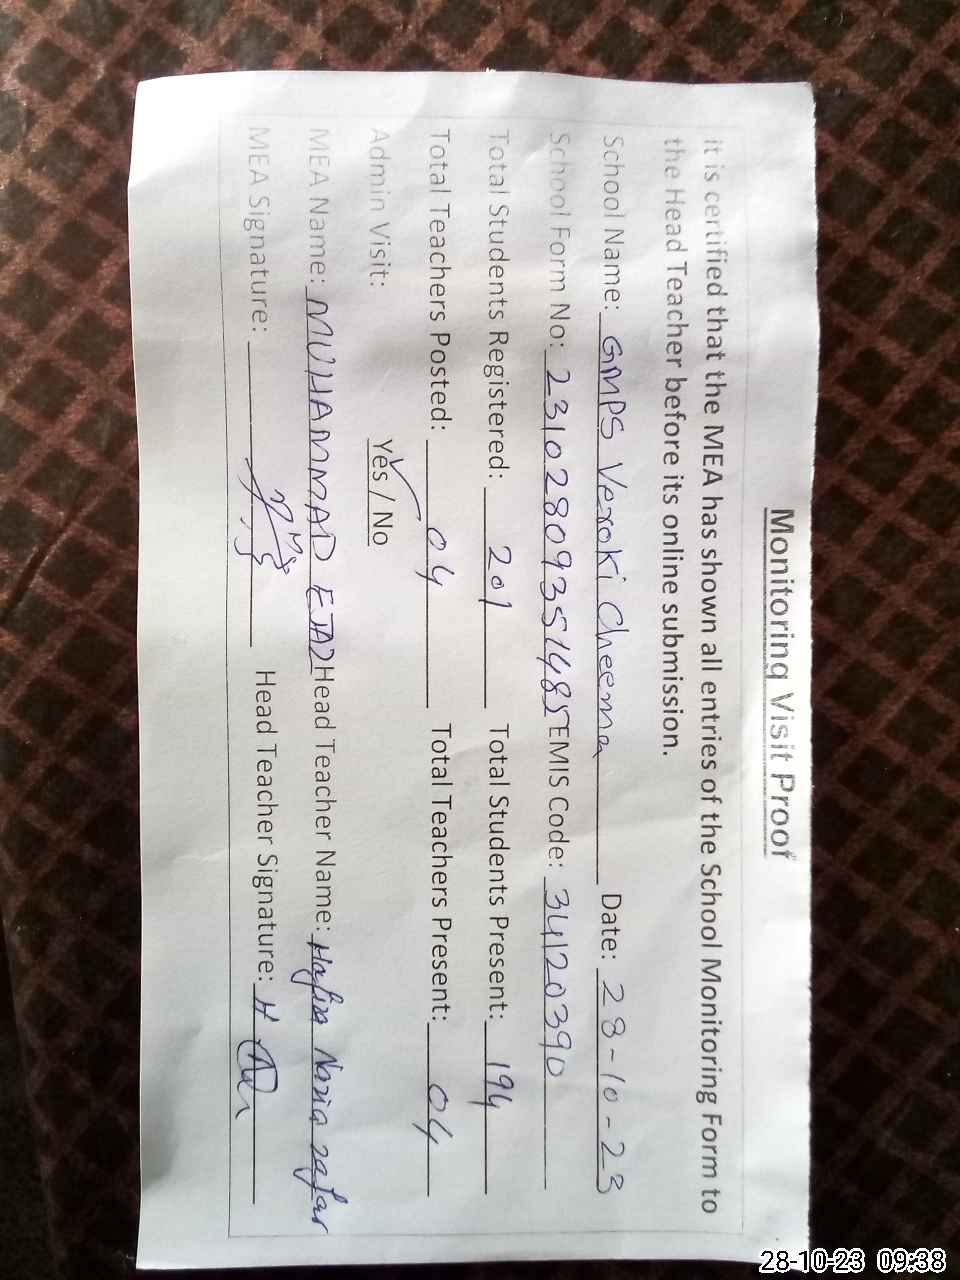 Monitoring Visit Proof
it is certified that the MEA has shown all entries of the School Monitoring Form to
the Head Teacher before its online submission.
School Name: GMPS Veroki Cheema Date: 28-10-23
School Form No: 23102809351485 EMIS Code: 34120390
Total Students Registered: 201 Total Students Present: 194
Total Teachers Posted: 04 Total Teachers Present: 04
Admin Visit: Yes / No
MEA Name: MUHAMMAD EJAZ Head Teacher Name: Hafiza Nazia Zafar
MEA Signature: Head Teacher Signature:
28-10-23 09:38